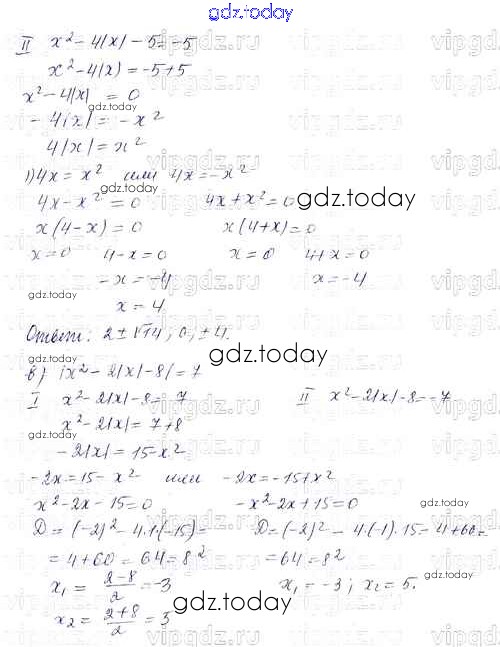 gdz.today
II x² - 4|x| - 5 = -5
x² - 4|x| = -5 + 5
x² - 4|x| = 0
gdz.today
- 4|x| = - x²
4|x| = x²
1) 4x = x² или 4x = - x²
gdz.today
4x - x² = 0 4x + x² = 0
gdz.today
x(4 - x) = 0 x(4 + x) = 0
x = 0 4 - x = 0 x = 0 4 + x = 0
- x = -4 x = -4
gdz.today
x = 4
Ответ: 2 ± √14; 0; ± 4.
gdz.today
в) |x² - 2|x| - 8| = 7
I x² - 2|x| - 8 = 7 II x² - 2|x| - 8 = -7
x² - 2|x| = 7 + 8
gdz.today
- 2|x| = 15 - x²
- 2x = 15 - x² или - 2x = -15 + x²
x² - 2x - 15 = 0 - x² - 2x + 15 = 0
gdz.today
D = (-2)² - 4·1·(-15) = D = (-2)² - 4·(-1)·15 = 4 + 60 =
= 4 + 60 = 64 = 8² = 64 = 8²
gdz.today
x₁ = (2-8)/2 = -3 x₁ = -3; x₂ = 5.
gdz.today
x₂ = (2+8)/2 = 5